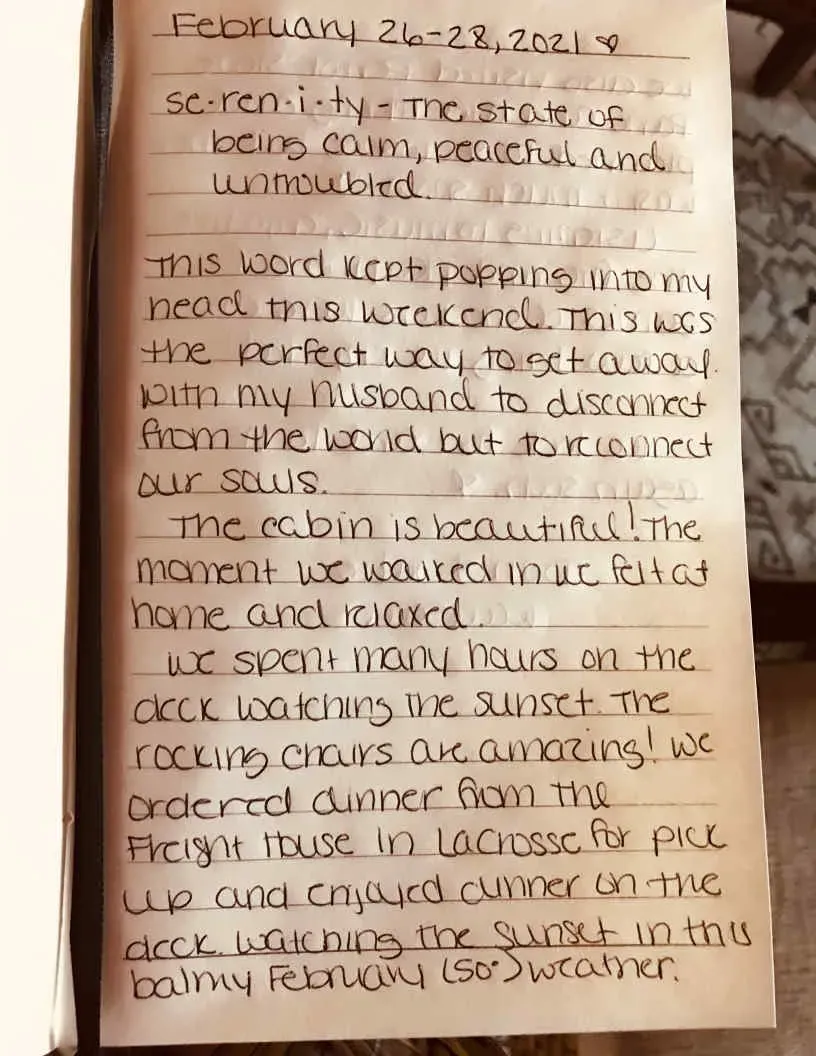 February 26-28, 2021 ♡
se·ren·i·ty - The state of
being calm, peaceful and
untroubled.
This word kept popping into my
head this weekend. This was
the perfect way to get away
with my husband to disconnect
from the world but to reconnect
our souls.
The cabin is beautiful! The
moment we walked in we felt at
home and relaxed.
We spent many hours on the
deck watching the sunset. The
rocking chairs are amazing! We
ordered dinner from the
Freight House in LaCrosse for pick
up and enjoyed dinner on the
deck watching the sunset in this
balmy February (50°) weather.